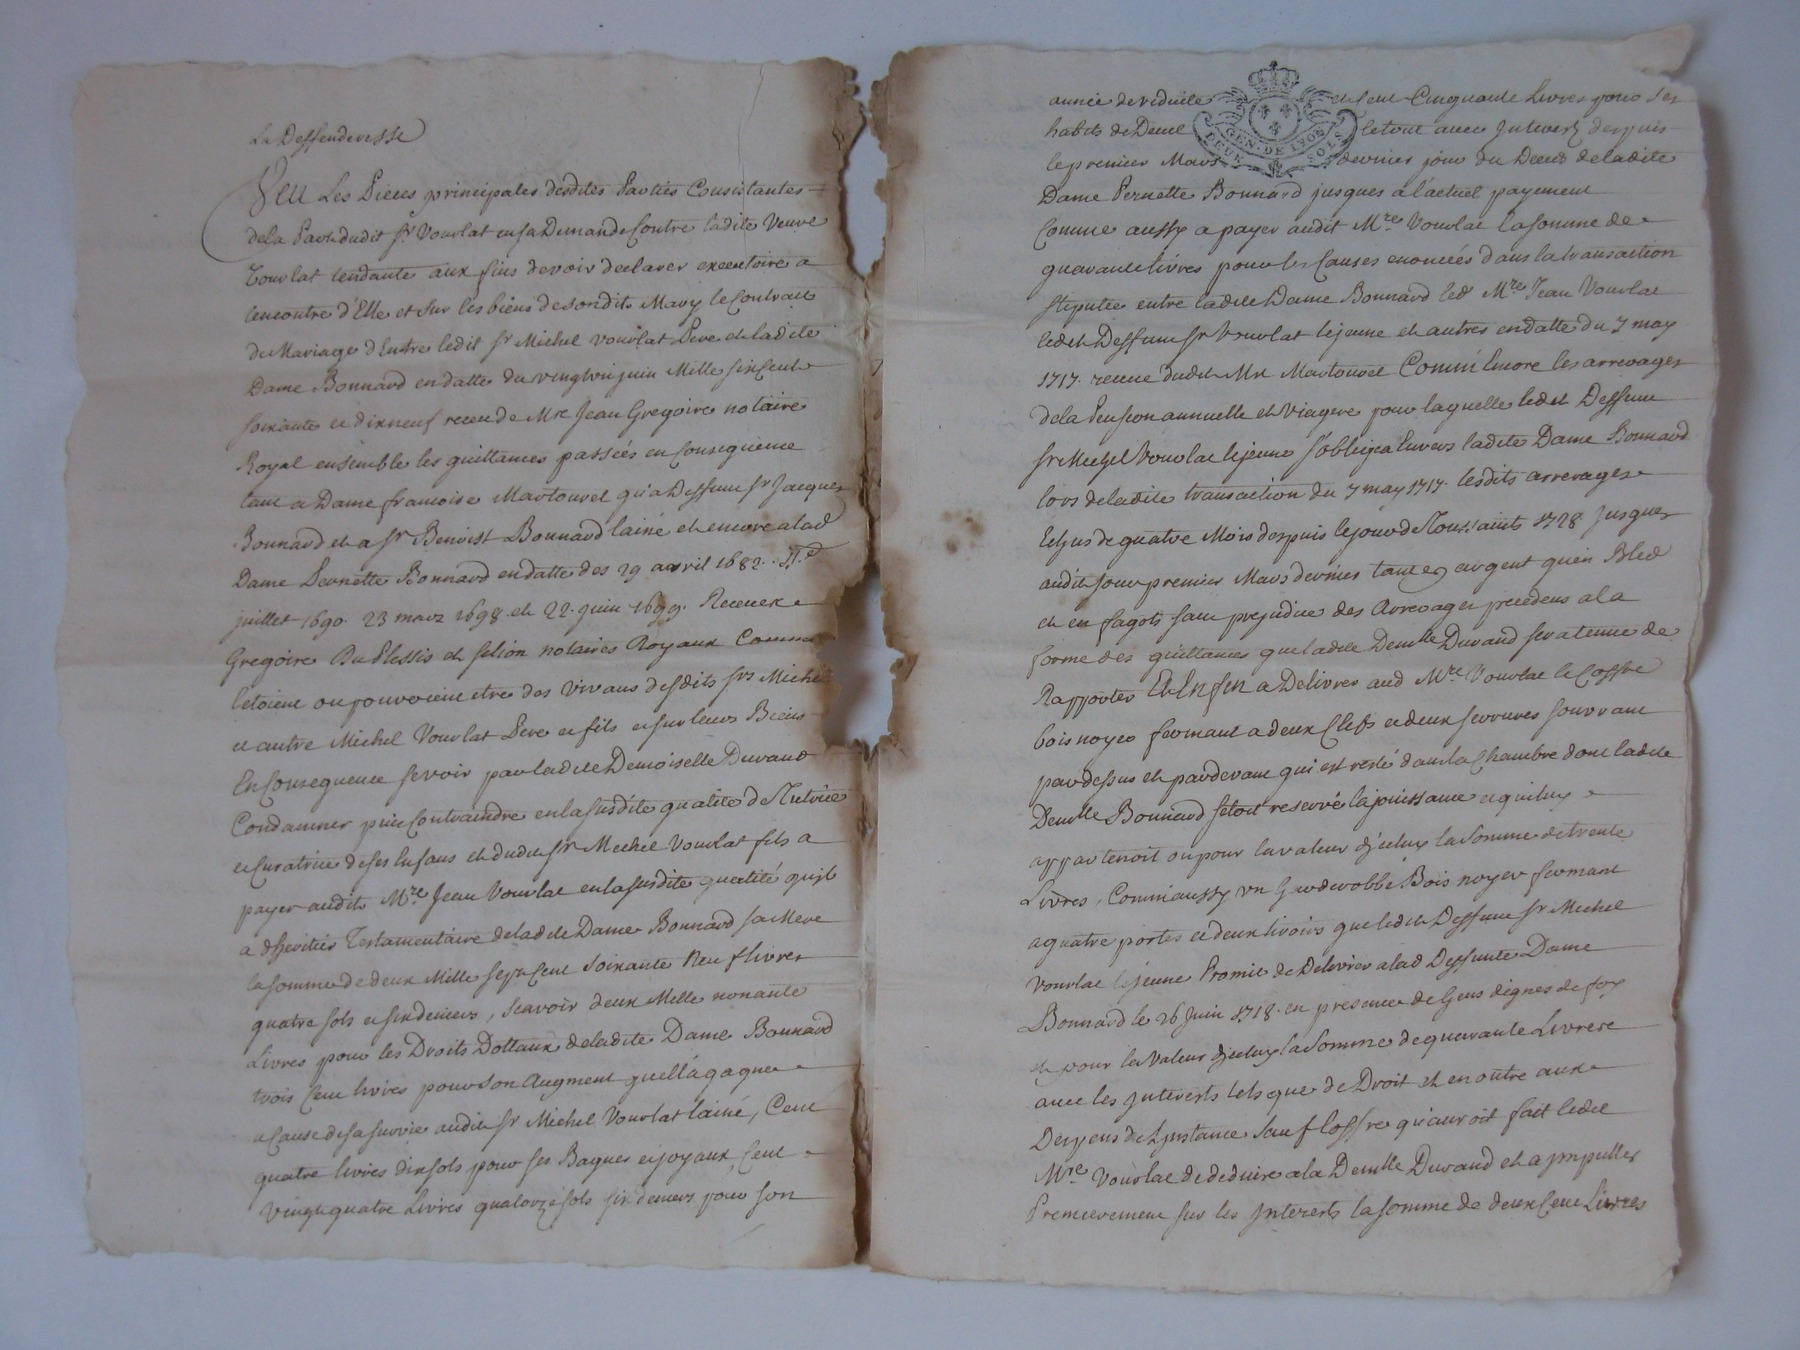 La Deffenderesse
Veu Les Pieces principales desdites Parties Consistantes
de la Part dudit Sr. Vourlat en sa Demande Contre ladite Veuve
Vourlat tendante aux fins de voir declarer executoire a
lencontre d'Elle et sur les biens desondit Mary le Contract
de Mariage d'Entre ledit Sr Michel Vourlat Pere et ladite
Dame Bonnard en datte du vingt juin Mille six Cent
soixante et dixneuf receu de Mre Jean Gregoire notaire
Royal ensemble les quittances passées en Consequence
tant a Dame francoise Martourel qu'a Deffunt Sr Jacques
Bonnard et a Sr Benoist Bonnard lainé et encore a lad
Dame Pernette Bonnard en datte des 29 avril 1682.
juillet 1690. 23 mars 1698. et 22. juin 1699. Receues
Gregoire Du Plessis et felion notaires Royaux Comme
letoient ou pouvoient etre des Vivans desdits Srs Michel
et autre Michel Vourlat Pere et fils et sur leurs Biens
En Consequence se voir par ladite Demoiselle Durand
Condamner puis Contraindre en la susdite qualité de Tutrice
et Curatrice de ses Enfans et dudit Sr Michel Vourlat fils a
payer audit Mre Jean Vourlat en la susdite qualité quil
a d'heritier Testamentaire de ladite Dame Bonnard sa Mere
la somme de deux Mille sept Cent Soixante Neuf livres
quatre sols et six deniers, scavoir deux Mille nonante
Livres pour les Droits Dottaux de ladite Dame Bonnard
trois Cent livres pour son Augment quell'a gagné
a Cause de sa survie audit Sr Michel Vourlat lainé, Cent
quatre livres dix sols pour ses Bagues et joyaux, Cent
Vingt quatre Livres quatorze sols six deniers pour son
année de viduité et Cent Cinquante Livres pour ses
habits de Deuil le tout avec Interest depuis
le premier Mars dernier jour du Deces de ladite
GEN. DE LYON
DEUX SOLS
Dame Pernette Bonnard jusques a l'actuel payement
Comme aussy a payer audit Mre Vourlat la somme de
quarante livres pour les Causes enoncées dans la transaction
stipulée entre ladite Dame Bonnard led Mre Jean Vourlat
ledit Deffunt Sr Vourlat lejeune et autres en datte du 7 may
1717. receue dudit Me Martourel Comm'Encore les arrerages
de la Pension annuelle et Viagere pour laquelle ledit Deffunt
Sr Michel Vourlat lejeune s'obligea Envers ladite Dame Bonnard
lors de ladite transaction du 7 may 1717. lesdits arrerages
Echus de quatre Mois depuis le jour de Toussaints 1728 jusques
audit jour premier Mars dernier tant en argent qu'en Bled
et en fagots sans prejudice des Arrerages precedens a la
forme des quittances que ladite Demlle Durand sera tenue de
Rapporter Et Enfin a Delivrer aud Mre Vourlat le Coffre
bois noyer fermant a deux Clefs et deux serrures souvrant
par dessus et par devant qui est resté dans la Chambre dont ladite
Demlle Bonnard setoit reservé la jouissance et qui luy
appartenoit ou pour la valeur dicelux la somme de trente
Livres, Comm'aussy un Garderobbe Bois noyer fermant
a quatre portes et deux tiroirs que ledit Deffunt Sr Michel
Vourlat lejeune Promit de Delivrer a lad Deffunte Dame
Bonnard le 26 juin 1718. en presence de Gens dignes de foy
et pour la Valeur dicelux la Somme de quarante Livres
avec les Interests tels que de Droit et en outre aux
Depens de L'instance Sauf L'offre qu'auroit fait ledit
Mre Vourlat de deduire a la Demlle Durand et a imputter
Premierement sur les Interests la somme de deux Cent Livres